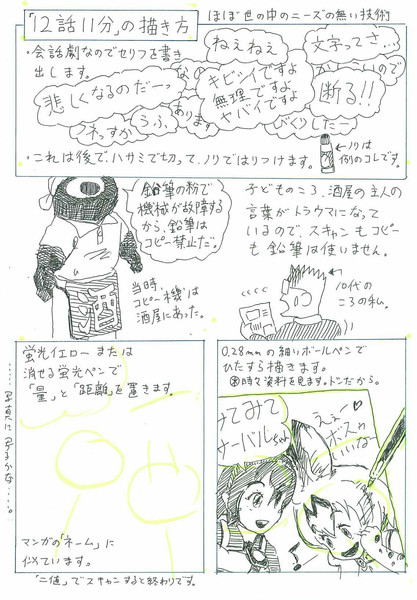 「12話11分」の描き方
ほぼ世の中のニーズの無い技術
・会話劇なのでセリフを書き
出します。
ねぇねぇ
文字ってさ…
悲しくなるのだーっ
キビシイですよ
無理ですよ
ヤバイですよ
断る!!
うふ
あります
びっくりしたー
・これは後で、ハサミで切って、ノリではりつけます。
←ノリは
例のコレです。
鉛筆の粉で
機械が故障する
から、鉛筆は
コピー禁止だ。
子どものころ、酒屋の主人の
言葉がトラウマになって
いるので、スキャンもコピー
も鉛筆は使いません。
当時、
コピー機は
酒屋にあった。
10代の
ころの私。
蛍光イエローまたは
消せる蛍光ペンで
「量」と「距離」を置きます。
マンガの「ネーム」に
似ています。
「二値」でスキャンすると終わりです。
0.28mmの細いボールペンで
ひたすら描きます。
時々資料を見ます。
みてみて
サーバルちゃん
えぇー
ボスかわ
いいなー